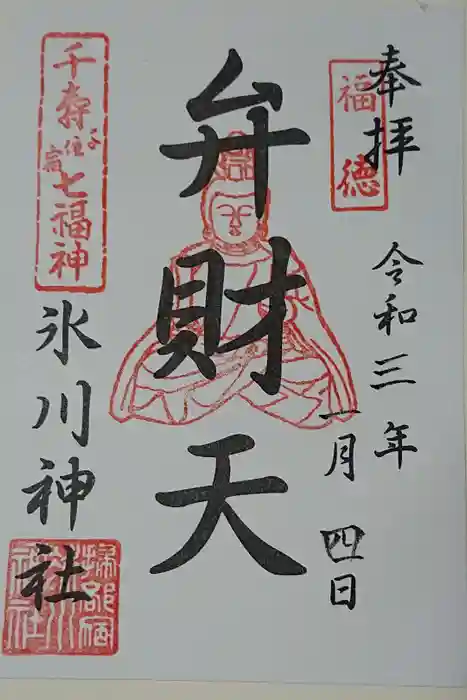 奉拝
福徳
令和三年
一月四日
弁財天
千寿七福神
氷川神社